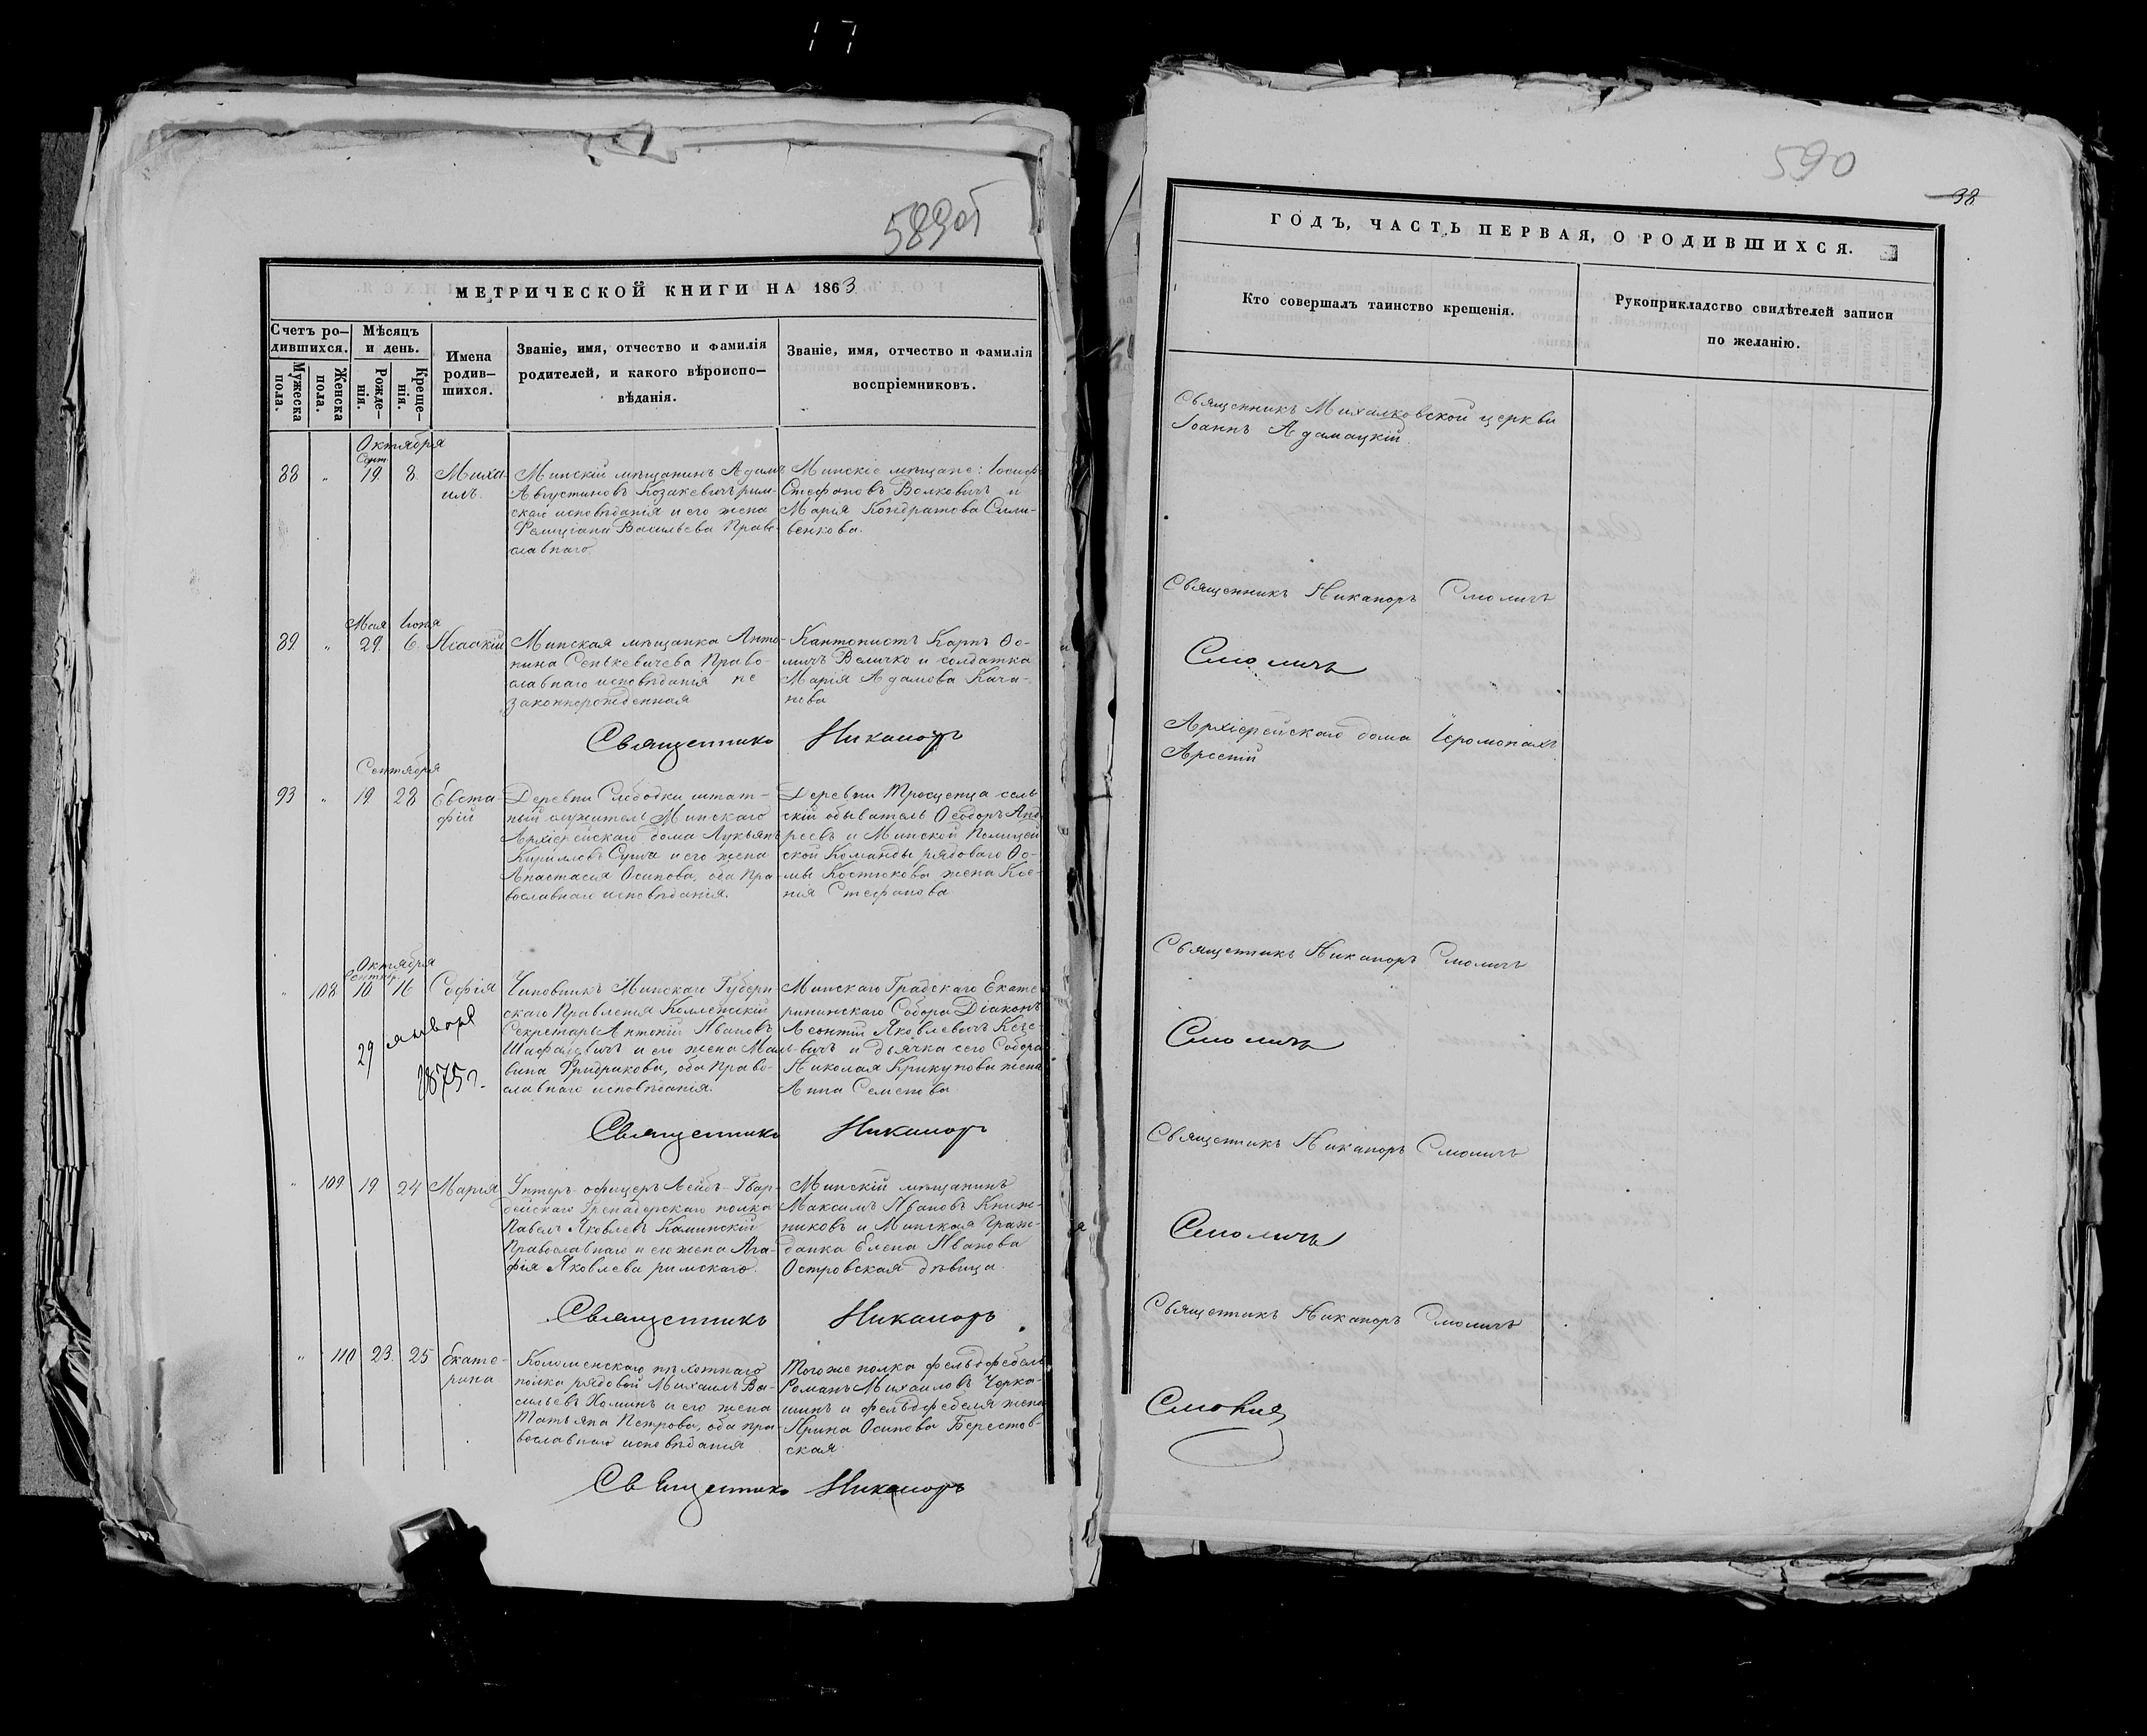 17
589об
МЕТРИЧЕСКОЙ КНИГИ НА 1863
Счетъ ро-
дившихся.
Мѣсяцъ
и день.
Мужеска
пола.
Женска
пола.
Рожде-
нія.
Креще-
нія.
Имена
родив-
шихся.
Званіе, имя, отчество и фамилія
родителей, и какого вѣроиспо-
вѣданія.
Званіе, имя, отчество и фамилія
воспріемниковъ.
Октября
Сент.
88 " 19. 8. Миха-
илъ.
Минскій мѣщанинъ Адамъ
Августиновъ Козакевичъ рим-
скаго исповѣданія и его жена
Фелиціана Васильева Право-
славнаго
Минскіе мѣщане: Іосифъ
Стефановъ Волковичъ и
Марья Кондратова Сили-
венкова.
Мая Іюня
89. " 29. 6. Исаакій
Минская мѣщанка Анто-
нина Сенкевичева Право-
славнаго исповѣданія не
законнорожденная
Кантонистъ Карпъ Ѳо-
мичъ Величко и солдатка
Марія Адамова Кача-
нова
Священникъ Никаноръ
Сентября
93 " 19 28 Евста-
фій
Деревни Слободки штат-
ный служитель Минскаго
Архіерейскаго дома Лукьянъ
Кирилловъ Суша и его жена
Анастасія Осипова, оба Пра-
вославнаго исповѣданія.
Деревни Тросценца сель-
скій обыватель Ѳеодоръ Анд-
реевъ и Минской Полицей-
ской Команды рядоваго Ѳо-
мы Костюкова жена Ксе-
нія Стефанова
Октября
Сентяб.
" 108 10 16 Софія
29 января
1875 г.
Чиновникъ Минскаго Губерн-
скаго Правленія Коллежскій
Секретарь Антоній Ивановъ
и его жена Маль-
вина Фридрикова, оба Право-
славнаго исповѣданія.
Минскаго Градскаго Екате-
рининскаго Собора Діаконъ
Леонтій Яковлевичъ
и дьячка сего Собора
Николая Крикунова жена
Анна Семенова
Священникъ Никаноръ
" 109 19 24 Марія
Унтеръ-офицеръ Лейбъ-Гвар-
дейскаго Гренадерскаго полка
Павелъ Яковлевъ Каминскій
Православнаго и его жена Ага-
фія Яковлева римскаго.
Минскій мѣщанинъ
Максимъ Ивановъ Книж-
никовъ и Минская Граж-
данка Елена Иванова
Островская дѣвица.
Священникъ Никаноръ
" 110 23. 25 Екате-
рина
Коломенскаго пѣхотнаго
полка рядовой Михаилъ Ва-
сильевъ Хоминъ и его жена
Татьяна Петрова, оба пра-
вославнаго исповѣданія
Тогоже полка фельдфебель
Романъ Михаиловъ Черка-
шинъ и фельдфебеля жена
Ирина Осипова Берестов-
ская.
Священникъ Никаноръ
590
38
ГОДЪ, ЧАСТЬ ПЕРВАЯ, О РОДИВШИХСЯ.
Кто совершалъ таинство крещенія.
Рукоприкладство свидѣтелей записи
по желанію.
Священникъ Михалковской церкви
Іоаннъ Адамацкій.
Священникъ Никаноръ Смоличъ
Смоличъ
Архіерейскаго дома Іеромонахъ
Арсеній
Священникъ Никаноръ Смоличъ
Смоличъ
Священникъ Никаноръ Смоличъ
Смоличъ
Священникъ Никаноръ Смоличъ
Смоличъ